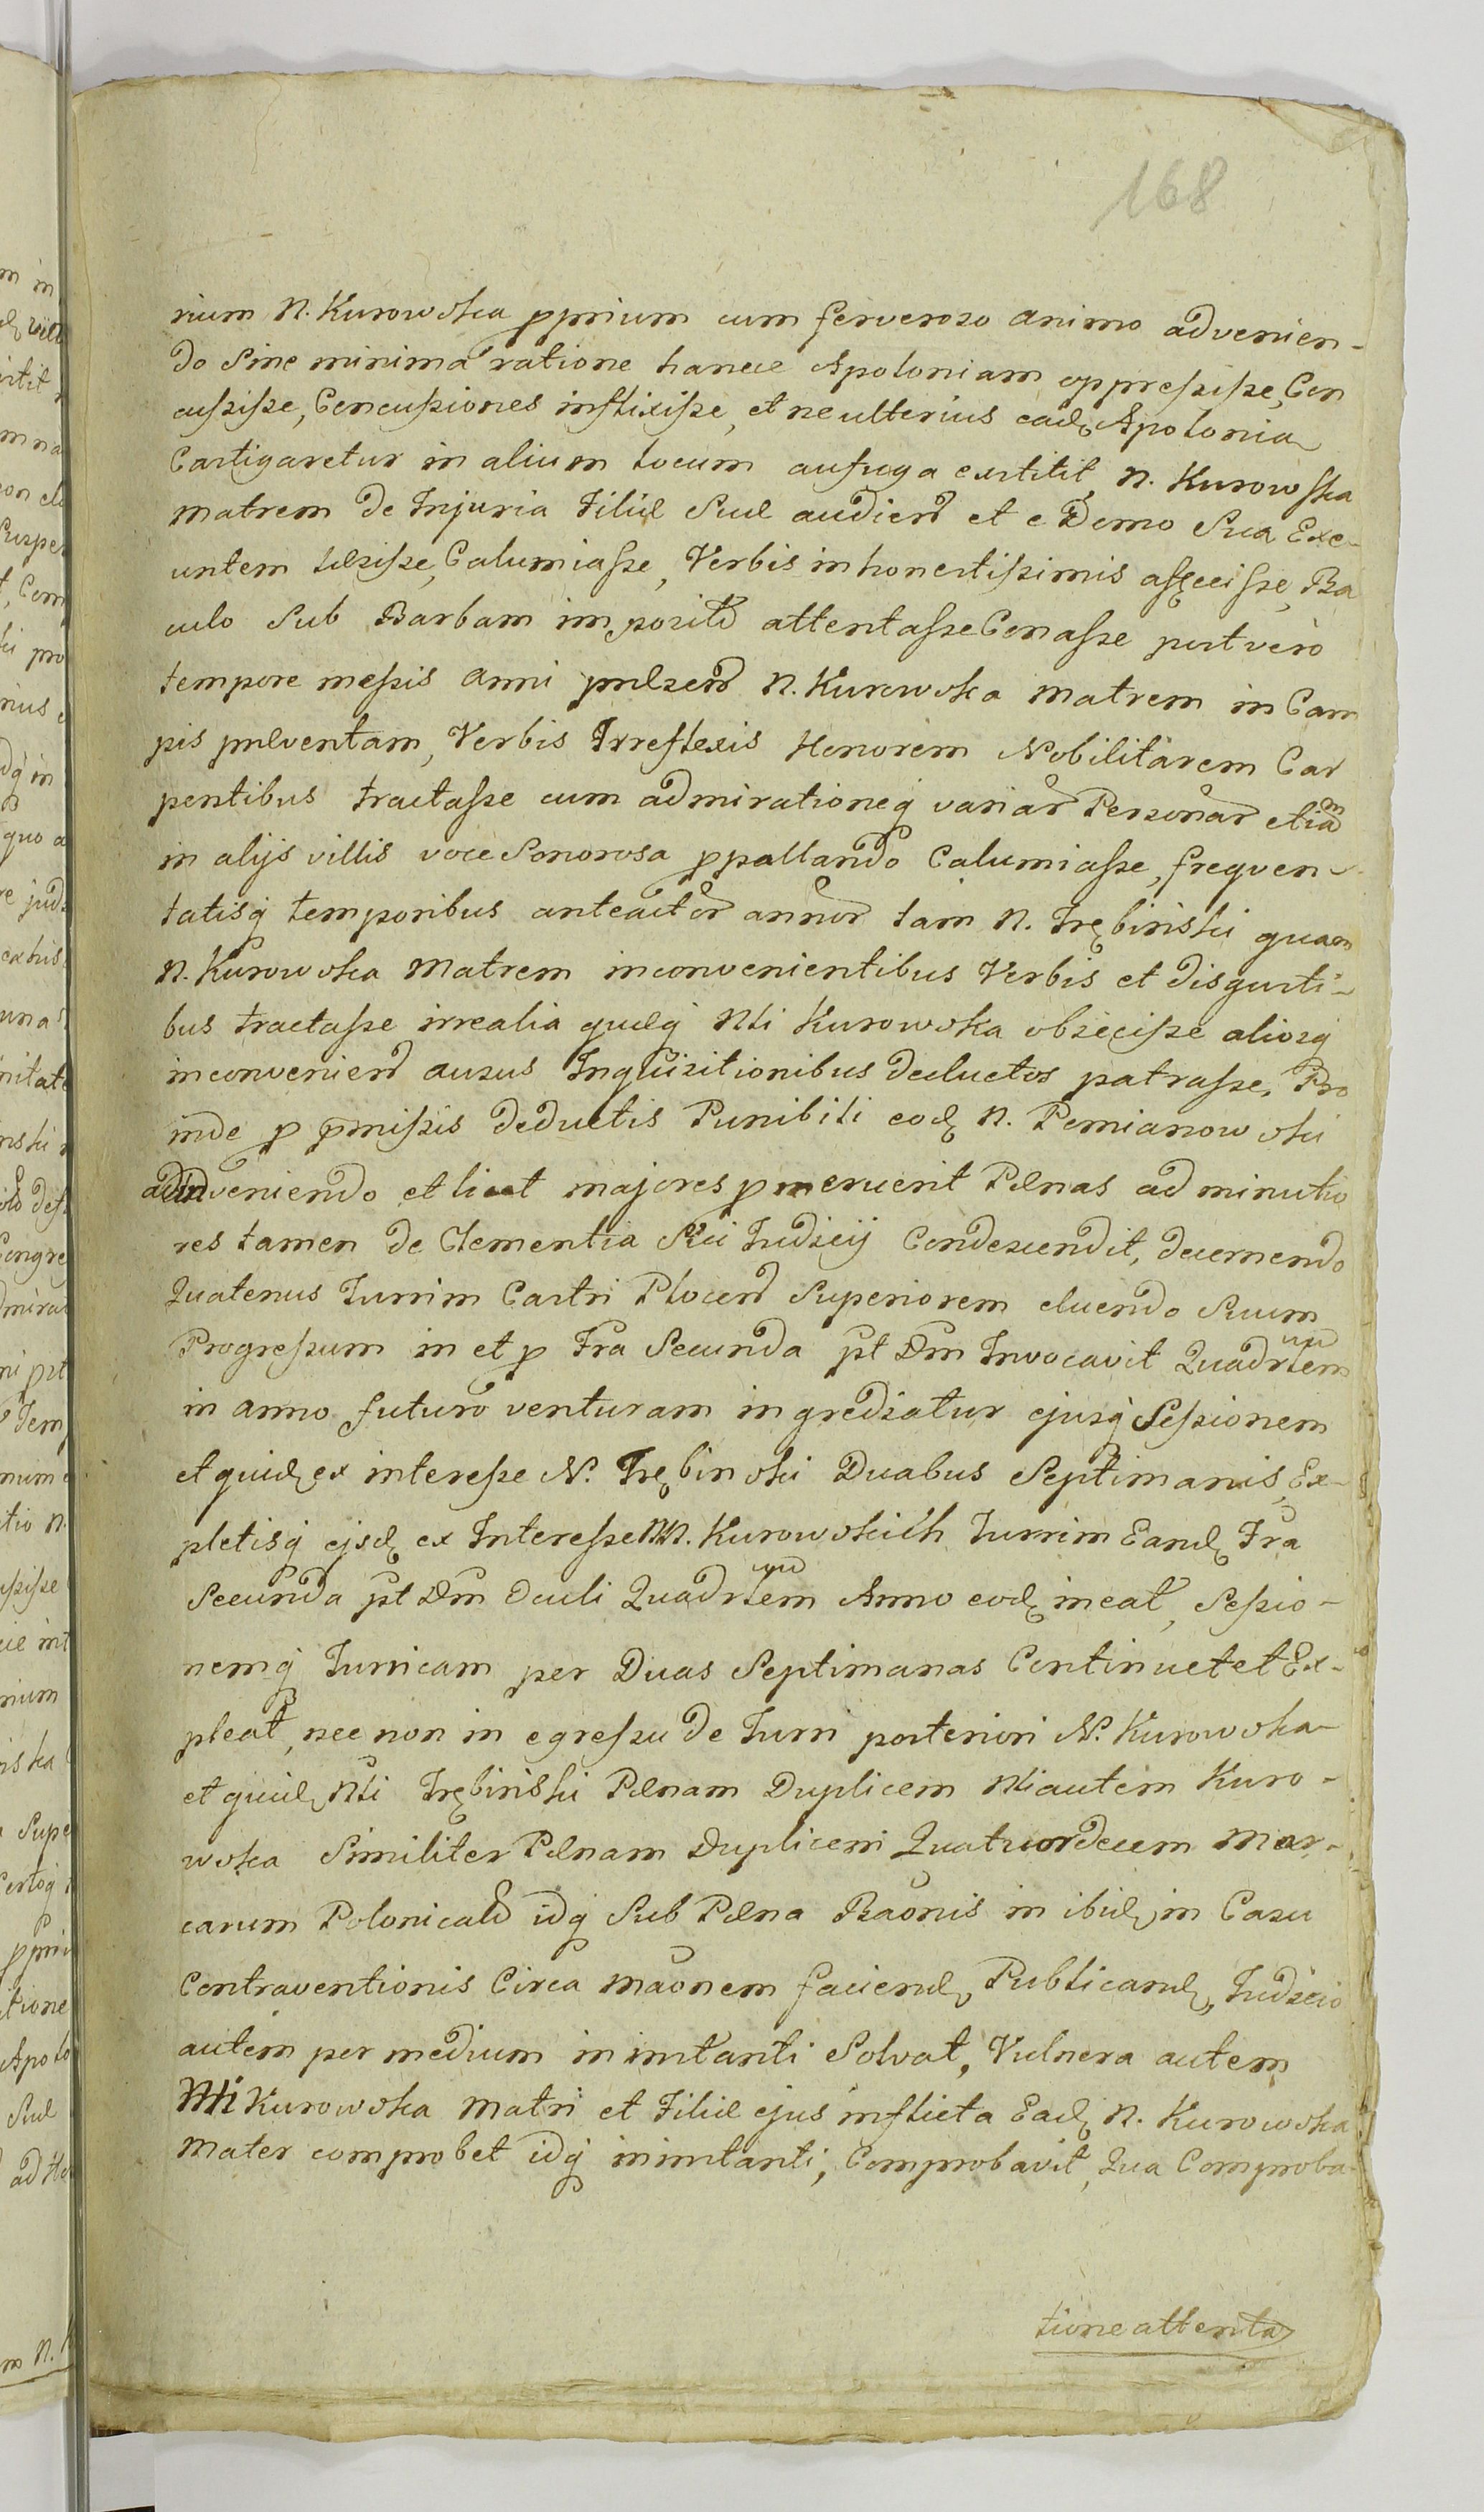 168
rium N. Kurowska pprium cum ferveroso animo advenien-
do Sine minima ratione hancce Apoloniam oppressisse, Con
cussisse, Concussiones inflixisse, et ne ulterius eadę Apolonia
Castigaretur in alium locum aufuga extitit, N. Kurowska
Matrem de Injuria Filiæ Suæ audien et e Domo Sua Exe-
untem læsisse, Calumiasse, Verbis inhonestissimis affecisse, Ba
culo Sub Barbam imposito attentasse Conasse post vero
tempore messis anni præsen N. Kurowska Matrem in Cam
pis præventam, Verbis Irreflexis Honorem Nobilitarem Car
pentibus tractasse cum admirationeq variar Personar etiam
in alijs villis voce Sonorosa ppallando Calumiasse, freqven-
tatisq temporibus anteactor annor tam N. Trębinski quam
N. Kurowska Matrem inconvenientibus Verbis et disgusti-
bus tractasse irrealia quæq Nli Kurowska objecisse aliosq
inconvenien ausus Inquisitionibus deductos patrasse, Pro
inde p pmissis deductis Punibili eodę N. Pomianowski
adinveniendo et licet majores pmeruerit Pænas ad minutio
res tamen de Clementia Sui Judicij Condescendit, decernendo
Quatenus Turrim Castri Plocen Superiorem eluendo Suum
Progressum in et p Fra Secunda pt Dm Invocavit Quadrlem
in anno futuro venturam ingrediatur ejusq Sessionem
et quidę ex interesse N. Trębinski Duabus Septimanis, Ex-
pletisq ejsdę ex Interesse NN. Kurowskich Turrim Eandę Fra
Secunda pt Dm Oculi Quadrlem Anno eodę ineat, Sessio-
nemq Turricam per Duas Septimanas Continuet et Ex-
pleat, nec non in egressu de Turri posteriori N. Kurowska
et quidę Nli Trębinski Pænam Duplicem Nli autem Kuro-
wska Similiter Pænam Duplicem Quatuordecem Mar-
carum Polonical idq Sub Pæna Baonis in ibidę in Casu
Contraventionis Circa Maonem faciendę Publicandę, Judicio
autem per medium in instanti Solvat, Vulnera autem
Nli Kurowska Matri et Filiæ ejus inflicta Eadę N. Kurowska
Mater comprobet idq in instanti, Comprobavit, Qua Comproba-
tione attenta